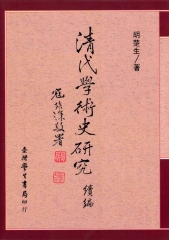 胡楚生/著
清代學術史研究
續編
臺灣學生書局印行